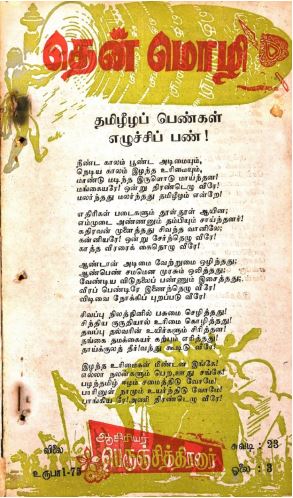 தென் மொழி
தமிழீழப் பெண்கள்
எழுச்சிப் பண் !
நீண்ட காலம் பூண்ட அடிமையும்,
நெடிய காலம் இழந்த உரிமையும்,
மாண்டு மடிந்த இருளொடு மாய்ந்தன!
மங்கையரே! ஒன்று திரண்டெழு வீரே!
மலர்ந்தது மலர்ந்தது தமிழீழம் என்றே!
எதிரிகள் படைகளும் தூள்தூள் ஆயின;
எம்முடை அண்ணனும் தம்பியும் சாய்த்தனர்!
கதிரவன் முளைத்தது சிவந்த வானிலே;
கன்னியரே! ஒன்று சேர்ந்தெழு வீரே!
காத்த வீரரைக் கைதொழு வீரே!
ஆண்டான் அடிமை வேற்றுமை ஒழிந்தது;
ஆண்பெண் சமமென முரசும் ஒலித்தது;
வேண்டிய விடுதலைப் பண்ணும் இசைத்தது,
வீரப் பெண்டிரே இணைந்தெழு வீரே!
விடிவை நோக்கிப் புறப்படு வீரே!
சிவப்பு நிலத்தினில் பசுமை செழித்தது!
சிந்திய குருதியால் உரிமை கொழித்தது!
தவப்பு தல்வரின் உயிர்களும் சிரித்தன!
நங்கை தமக்கையர் கற்பும் எரித்தது!
தாய்க்குலத் தீர்வந்து கூடிடு வீரே!
இழந்த உரிமைகள் மீண்டன இங்கே!
எல்லா நலன்களும் பெற்றது சங்கே!
பழந்தமிழ் ஈழம் சமைத்திடு வோமே!
பாரினுள் நாமும் உயர்ந்திடு வோமே!
பாங்கிய ரே!அணி திரண்டெழு வீரே!
விலை
உருபா1-75
ஆசிரியர்
பெருஞ்சித்திரனார்
சுவடி : 23
ஓலை : 3